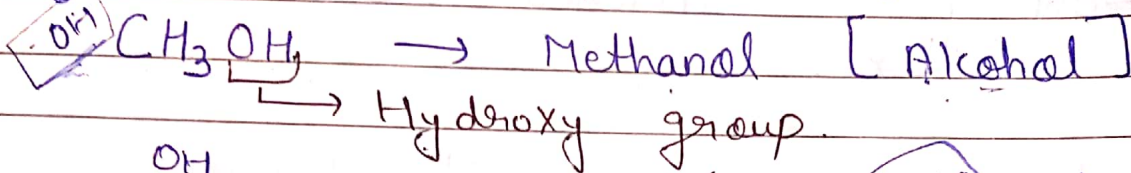 OH CH₃OH, → Methanol [Alcohol]
→ Hydroxy group.
OH